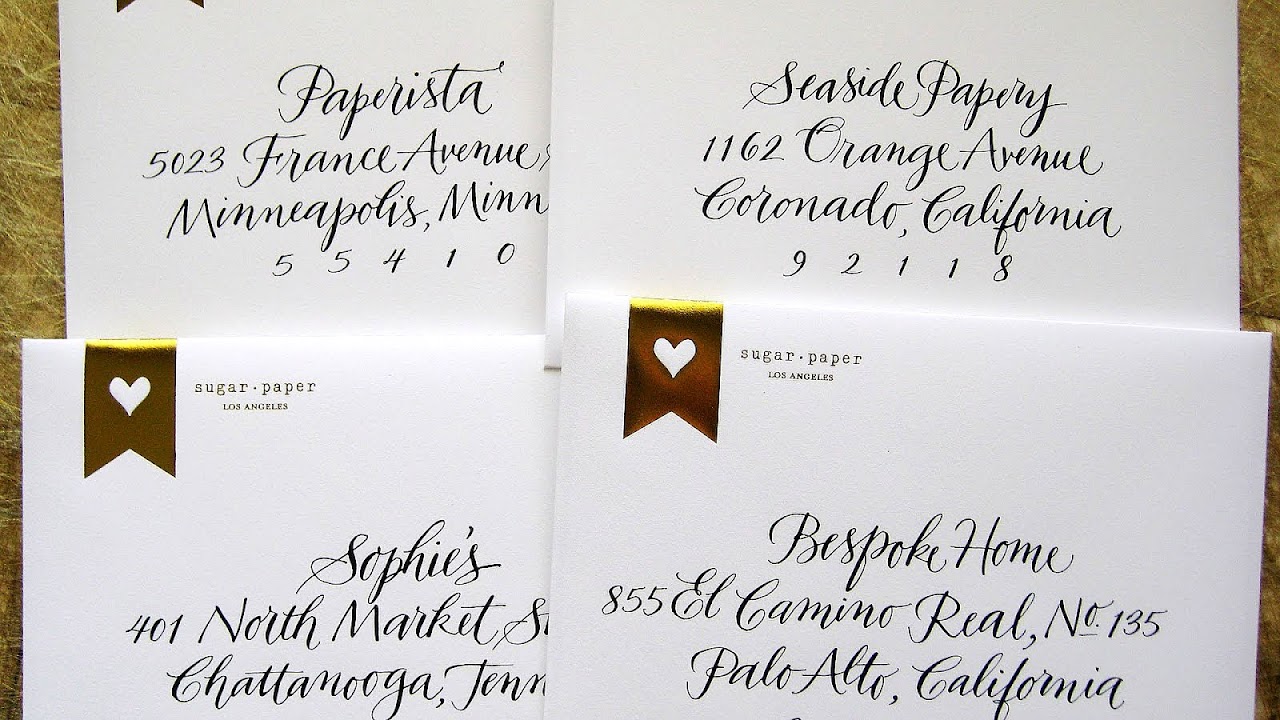 Paperista
5023 France Avenue
Minneapolis, Minn
5 5 4 1 0
Seaside Papery
1162 Orange Avenue
Coronado, California
9 2 1 1 8
sugar·paper
LOS ANGELES
Sophie's
401 North Market S
Chattanooga, Tenn
sugar·paper
LOS ANGELES
Bespoke Home
855 El Camino Real, No. 135
Palo Alto, California